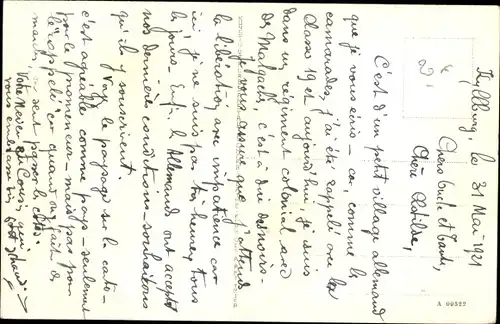 le 31 Mai 1921
Chers Oncle et Tante,
Chère Clotilde,
C'est d'un petit village allemand
que je vous écris - car, comme les
camarades, j'ai été rappelé avec la
classe 19 et aujourd'hui je suis
dans un régiment colonial avec
des Malgaches, c'est à dire des noirs -
je vous assure que j'attends
la libération avec impatience car
ici je ne suis pas très heureux tous
les jours - Enfin les Allemands ont accepté
nos dernières conditions - souhaitons
qu'ils y souscrivent.
Voyez le paysage sur la carte -
c'est agréable comme pays - seulement
pour le promeneur - mais pas pour
le rappelé car quand on fait des
marches, on sent passer les côtes.
Votre Neveu et Cousin, qui
vous embrasse bien
A 00522